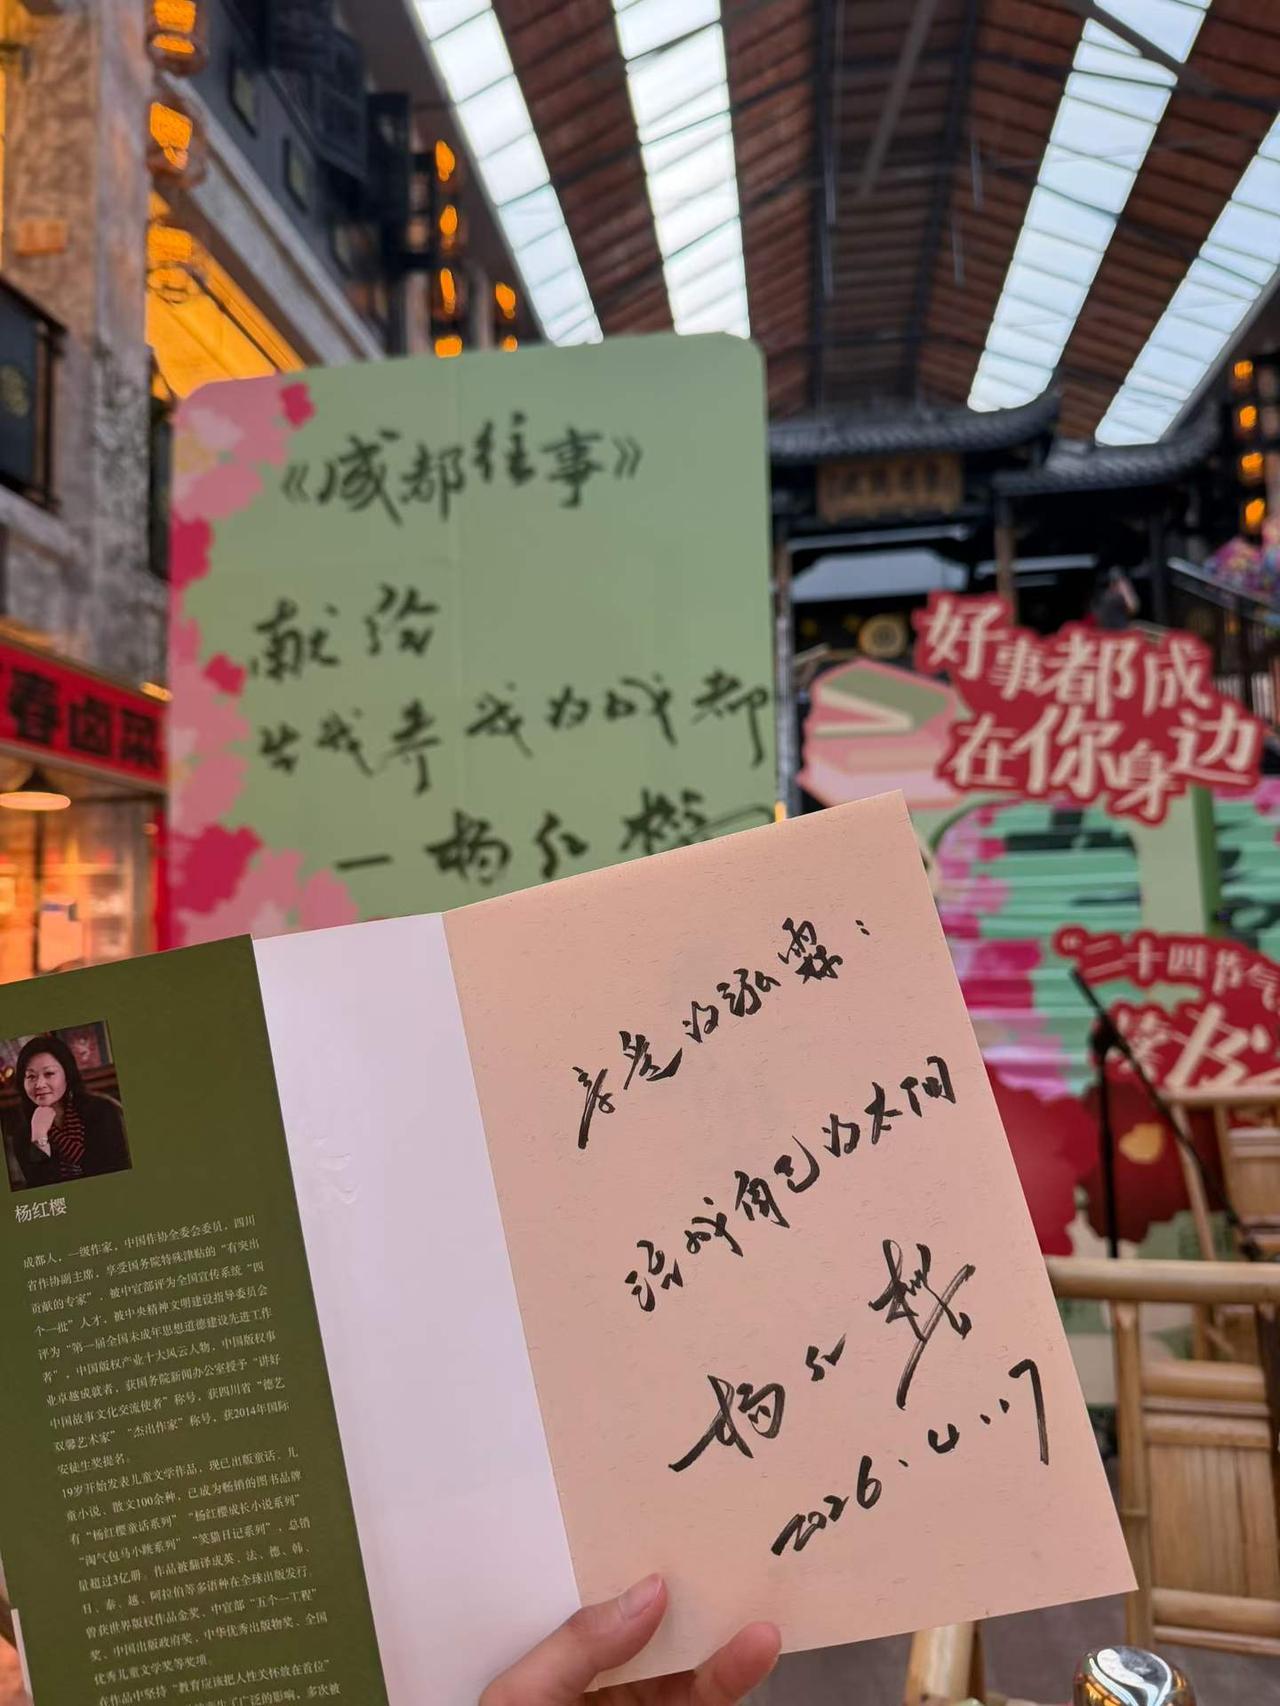 《成都往事》
献给
生我养我的成都
一杨红樱
好事都成
在你身边
"二十四节气
读书
春卤菜
亲爱的泓霖：
活成自己的太阳
杨红樱
2026.4.17
杨红樱
成都人，一级作家，中国作协全委会委员，四川
省作协副主席，享受国务院特殊津贴的“有突出
贡献的专家”，被中宣部评为全国宣传系统“四
个一批”人才，被中央精神文明建设指导委员会
评为“第一届全国未成年思想道德建设先进工作
者”，中国版权产业十大风云人物，中国版权事
业卓越成就者，获国务院新闻办公室授予“讲好
中国故事文化交流使者”称号，获四川省“德艺
双馨艺术家”“杰出作家”称号，获2014年国际
安徒生奖提名。
19岁开始发表儿童文学作品，现已出版童话、儿
童小说、散文100余种，已成为畅销的图书品牌
有“杨红樱童话系列”“杨红樱成长小说系列”
“淘气包马小跳系列”“笑猫日记系列”，总销
量超过3亿册。作品被翻译成英、法、德、韩、
日、泰、越、阿拉伯等多语种在全球出版发行。
曾获世界版权作品金奖、中宣部“五个一工程”
奖、中国出版政府奖，中华优秀出版物奖、全国
优秀儿童文学奖等奖项。
在作品中坚持“教育应该把人性关怀放在首位”
产生了广泛的影响，多次被